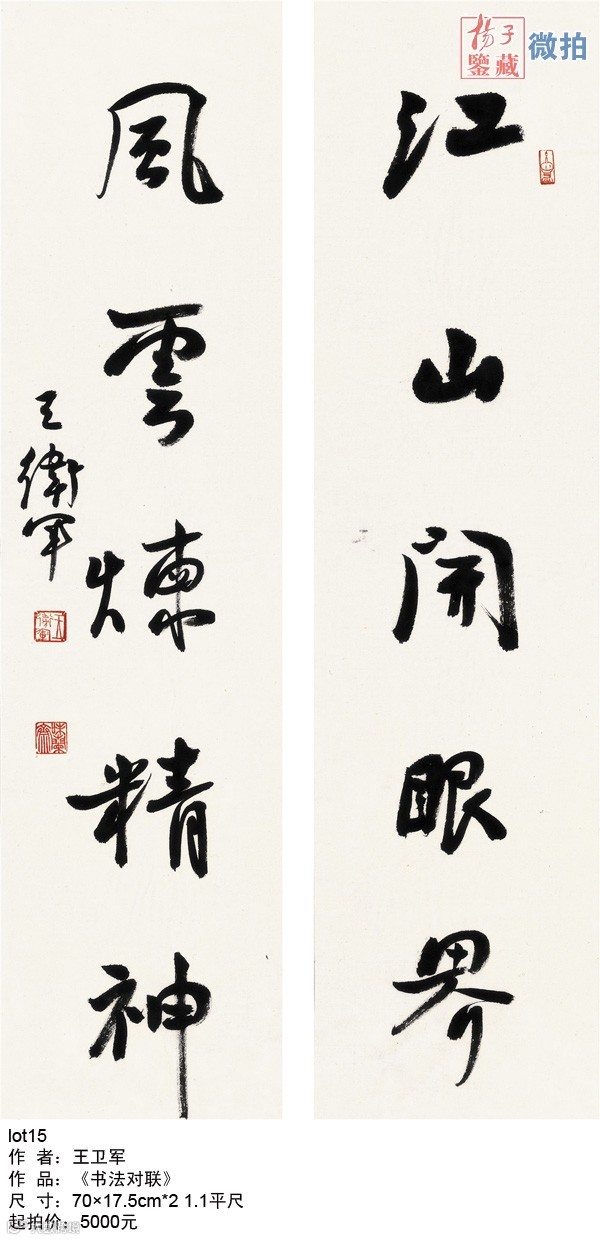 楊子
鑒藏
微拍
江山開眼界
風雲煉精神
王衛軍
lot15
作 者：王卫军
作 品：《书法对联》
尺 寸：70×17.5cm*2 1.1平尺
起拍价：5000元